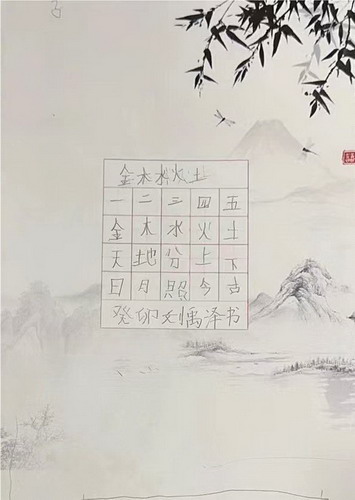 金木水火土
一二三四五
金木水火土
天地分上下
日月照今古
癸卯刘禹泽书